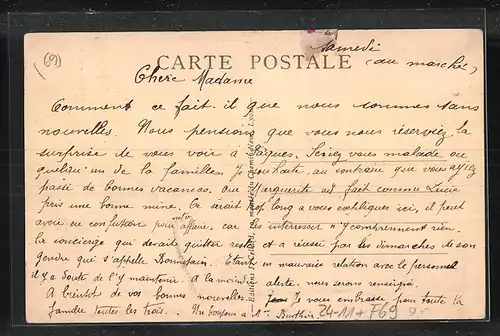 (69)
Samedi
(au marché)
CARTE POSTALE
Chère Madame
Comment ce fait-il que nous sommes sans
nouvelles. Nous pensions que vous nous réserviez la
surprise de vous voir à Pâques. Seriez vous malade ou
quelqu'un de la famille. Je souhaite au contraire que vous ayez
passé de bonnes vacances, que Marguerite ait fait comme Lucie
pris une bonne mine. Ce serait trop long à vous expliquer ici, il peut
avoir eu confusion pour notre affaire, car les intéressés n'y comprennent rien.
la concierge qui devait quitter reste et a réussi par les démarches de son
gendre qui s'appelle Bonnepain. Etant en mauvaise relation avec le personnel
il y a doute de l'y maintenir. A la moindre alerte. nous serons renseignés.
A bientôt de vos bonnes nouvelles. Je vous embrasse pour toute la
toutes les trois. Un bonjour à Mr
24-11+769